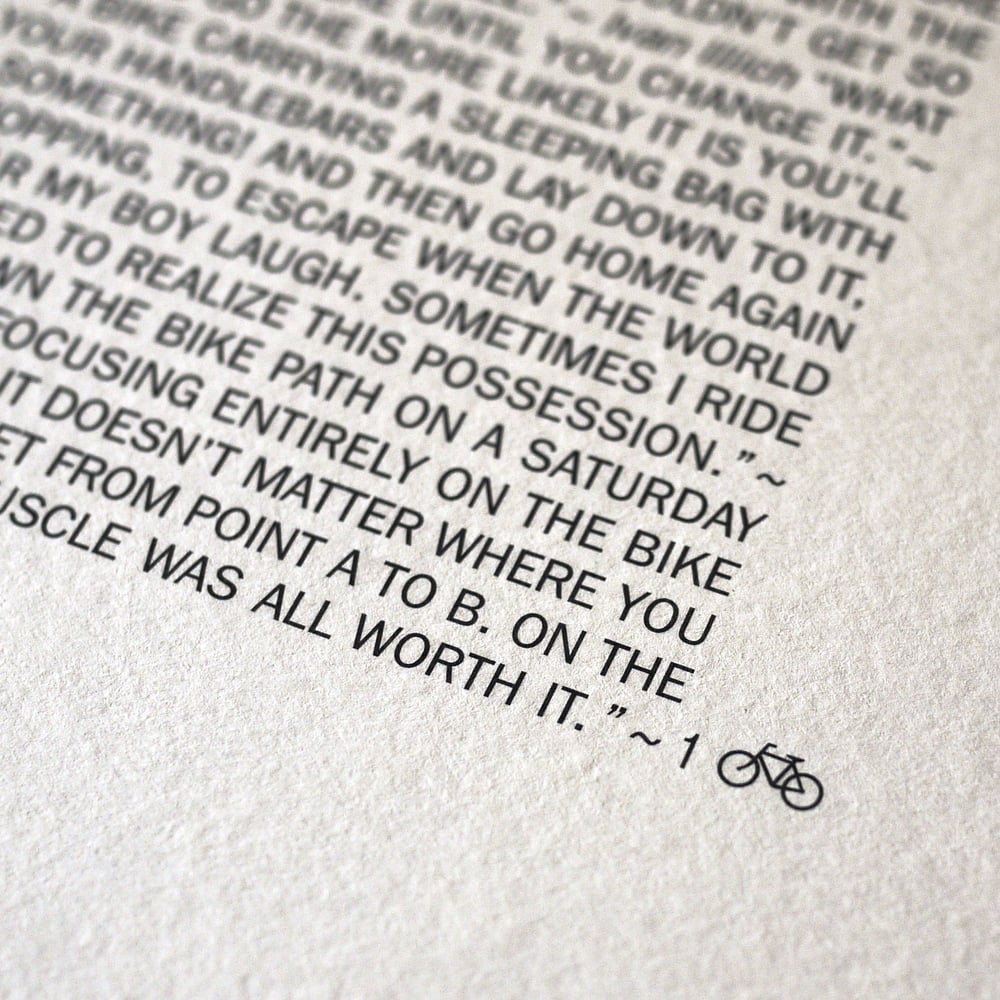 WITH THE
GET SO
~ Ivan Illich "WHAT
UNTIL YOU CHANGE IT." ~
SO THE MORE LIKELY IT IS YOU'LL
BIKE CARRYING A SLEEPING BAG WITH
YOUR HANDLEBARS AND LAY DOWN TO IT,
SOMETHING! AND THEN GO HOME AGAIN
OPPING, TO ESCAPE WHEN THE WORLD
R MY BOY LAUGH. SOMETIMES I RIDE
ED TO REALIZE THIS POSSESSION." ~
WN THE BIKE PATH ON A SATURDAY
FOCUSING ENTIRELY ON THE BIKE
IT DOESN'T MATTER WHERE YOU
ET FROM POINT A TO B. ON THE
USCLE WAS ALL WORTH IT." ~ 1